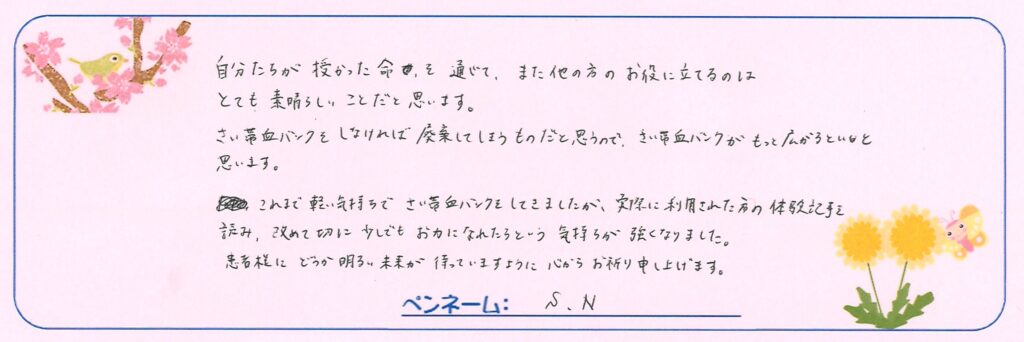 自分たちが 授かった 命を 通じて、また他の方の お役に立てるのは
とても 素晴らしい ことだと 思います。
さい帯血バンクを しなければ 廃棄してしまう ものだと思うので、さい帯血バンクが もっと広がるといいと
思います。
これまで 軽い気持ちで さい帯血バンクをしてきましたが、実際に利用された方の 体験記事を
読み、改めて切に 少しでも お力になれたらという 気持ちが 強くなりました。
患者様に どうか 明るい未来が 待っていますように 心から お祈り申し上げます。
ペンネーム: S.N